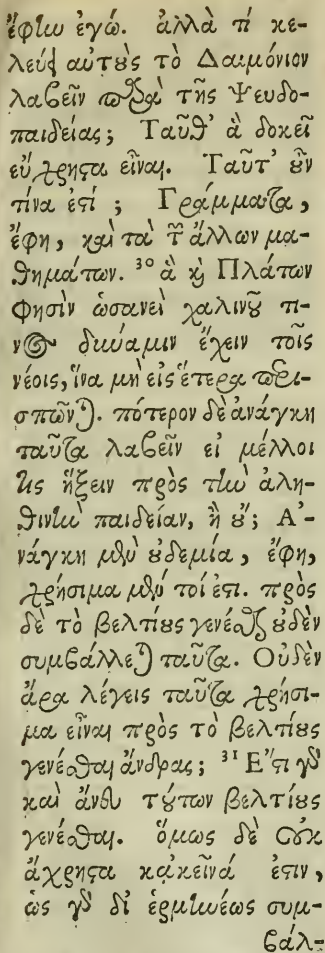 ἔφην ἐγώ. ἀλλὰ τί κε-
λεύει αὐτοὺς τὸ Δαιμόνιον
λαβεῖν παρὰ τῆς Ψευδο-
παιδείας; Ταῦθ' ἃ δοκεῖ
εὔχρηστα εἶναι. Ταῦτ' οὖν
τίνα ἐστί; Γράμματα,
ἔφη, καὶ τὰ τῶν ἄλλων μα-
θημάτων. 30 ἃ καὶ Πλάτων
φησὶν ὡσανεὶ χαλινοῦ τι-
νος δύναμιν ἔχειν τοῖς
νέοις, ἵνα μὴ εἰς ἕτερα περι-
σπῶνται. πότερον δὲ ἀνάγκη
ταῦτα λαβεῖν εἰ μέλλοι
τις ἥξειν πρὸς τὴν ἀλη-
θινὴν παιδείαν, ἢ οὔ; Ἀ-
νάγκη μὲν οὐδεμία, ἔφη,
χρήσιμα μέν τοί ἐστι. πρὸς
δὲ τὸ βελτίους γενέσθαι οὐδὲν
συμβάλλεται ταῦτα. Οὐδὲν
ἄρα λέγεις ταῦτα χρήσι-
μα εἶναι πρὸς τὸ βελτίους
γενέσθαι ἄνδρας; 31 Ἔστι γὰρ
καὶ ἄνευ τούτων βελτίους
γενέσθαι. ὅμως δὲ οὐκ
ἄχρηστα κἀκεῖνά ἐστιν,
ὡς γὰρ δι' ἑρμηνέως συμ-
βάλ-